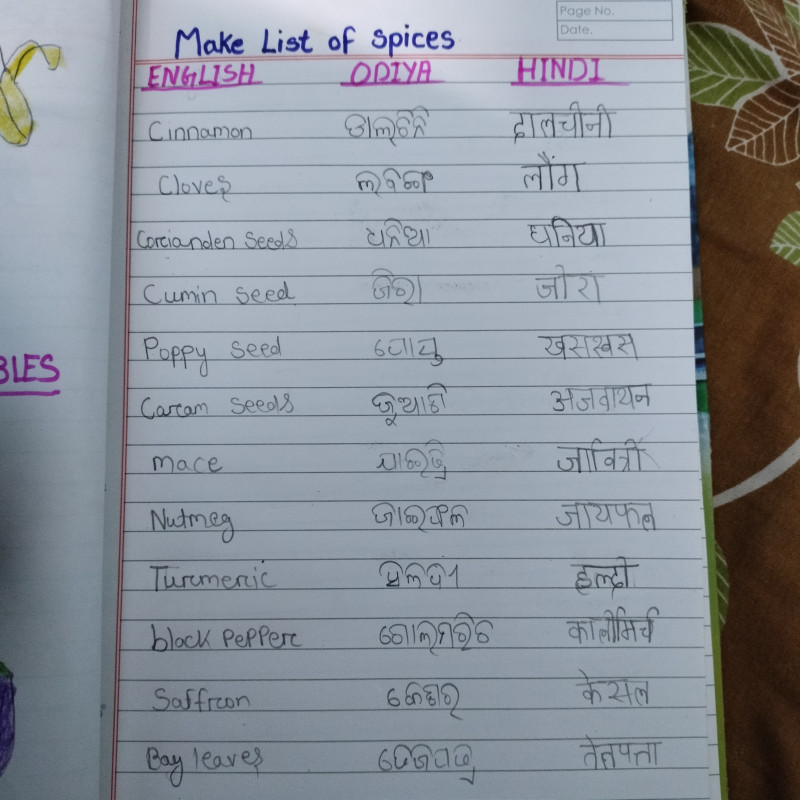 Page No.
Date.
Make List of spices
ENGLISH ODIYA HINDI
Cinnamon ଡାଲଚିନି दालचीनी
Cloves ଲବଙ୍ଗ लौंग
Corcianden Seeds ଧନିଆ धनिया
Cumin Seed ଜିରା जीरा
Poppy Seed ପୋସ୍ତୁ खसखस
Carcam Seeds ଜୁଆଣି अजवायन
mace ଯାଇତ୍ରି जावित्री
BLES
Nutmeg ଜାଇଫଳ जायफल
Turcmercic ହଳଦୀ हल्दी
block PePPerc ଗୋଲମରିଚ कालीमिर्च
Saffrcon କେଶର केसल
Bay leaves ତେଜପତ୍ର तेजपत्ता